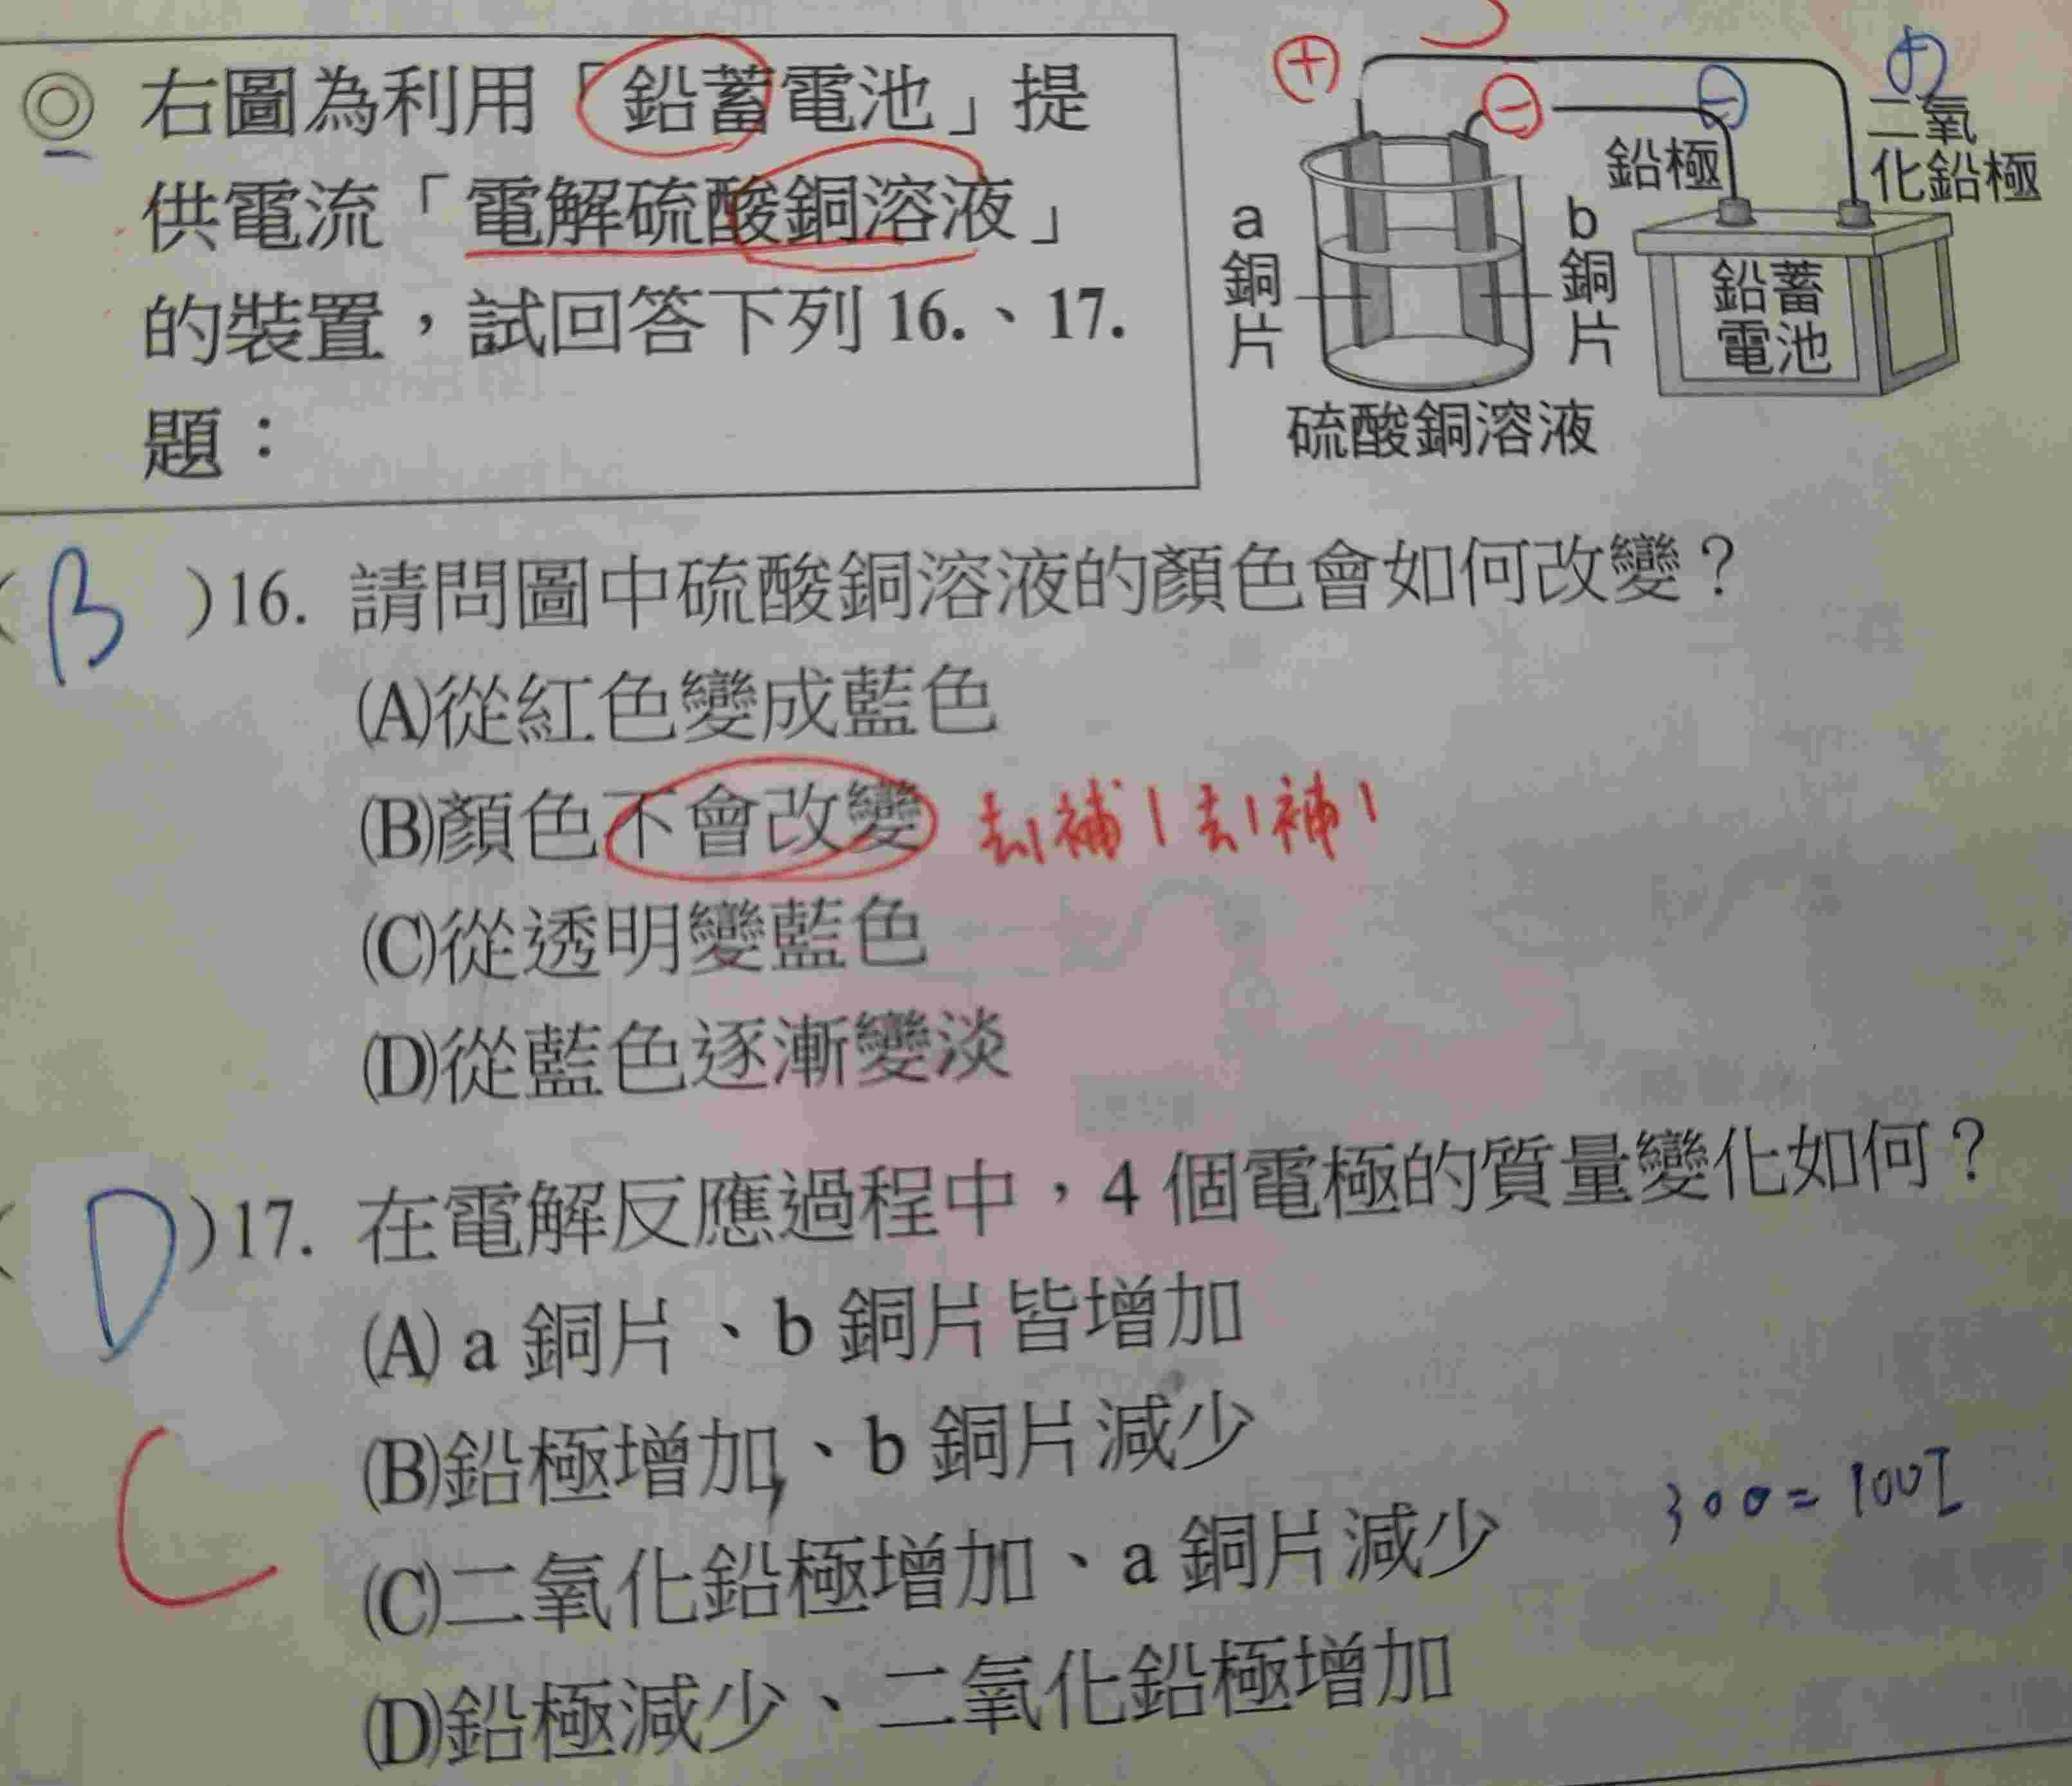 ◎ 右圖為利用「鉛蓄電池」提
供電流「電解硫酸銅溶液」
的裝置，試回答下列 16.、17.
題：
+
−
−
鉛極
二氧
化鉛極
a
銅
片
b
銅
片
鉛蓄
電池
硫酸銅溶液
( B )16. 請問圖中硫酸銅溶液的顏色會如何改變？
(A)從紅色變成藍色
(B)顏色不會改變 去1補1去1補1
(C)從透明變藍色
(D)從藍色逐漸變淡
( D )17. 在電解反應過程中，4 個電極的質量變化如何？
(A) a 銅片、b 銅片皆增加
(B)鉛極增加、b 銅片減少
C
(C)二氧化鉛極增加、a 銅片減少
300=100I
(D)鉛極減少、二氧化鉛極增加